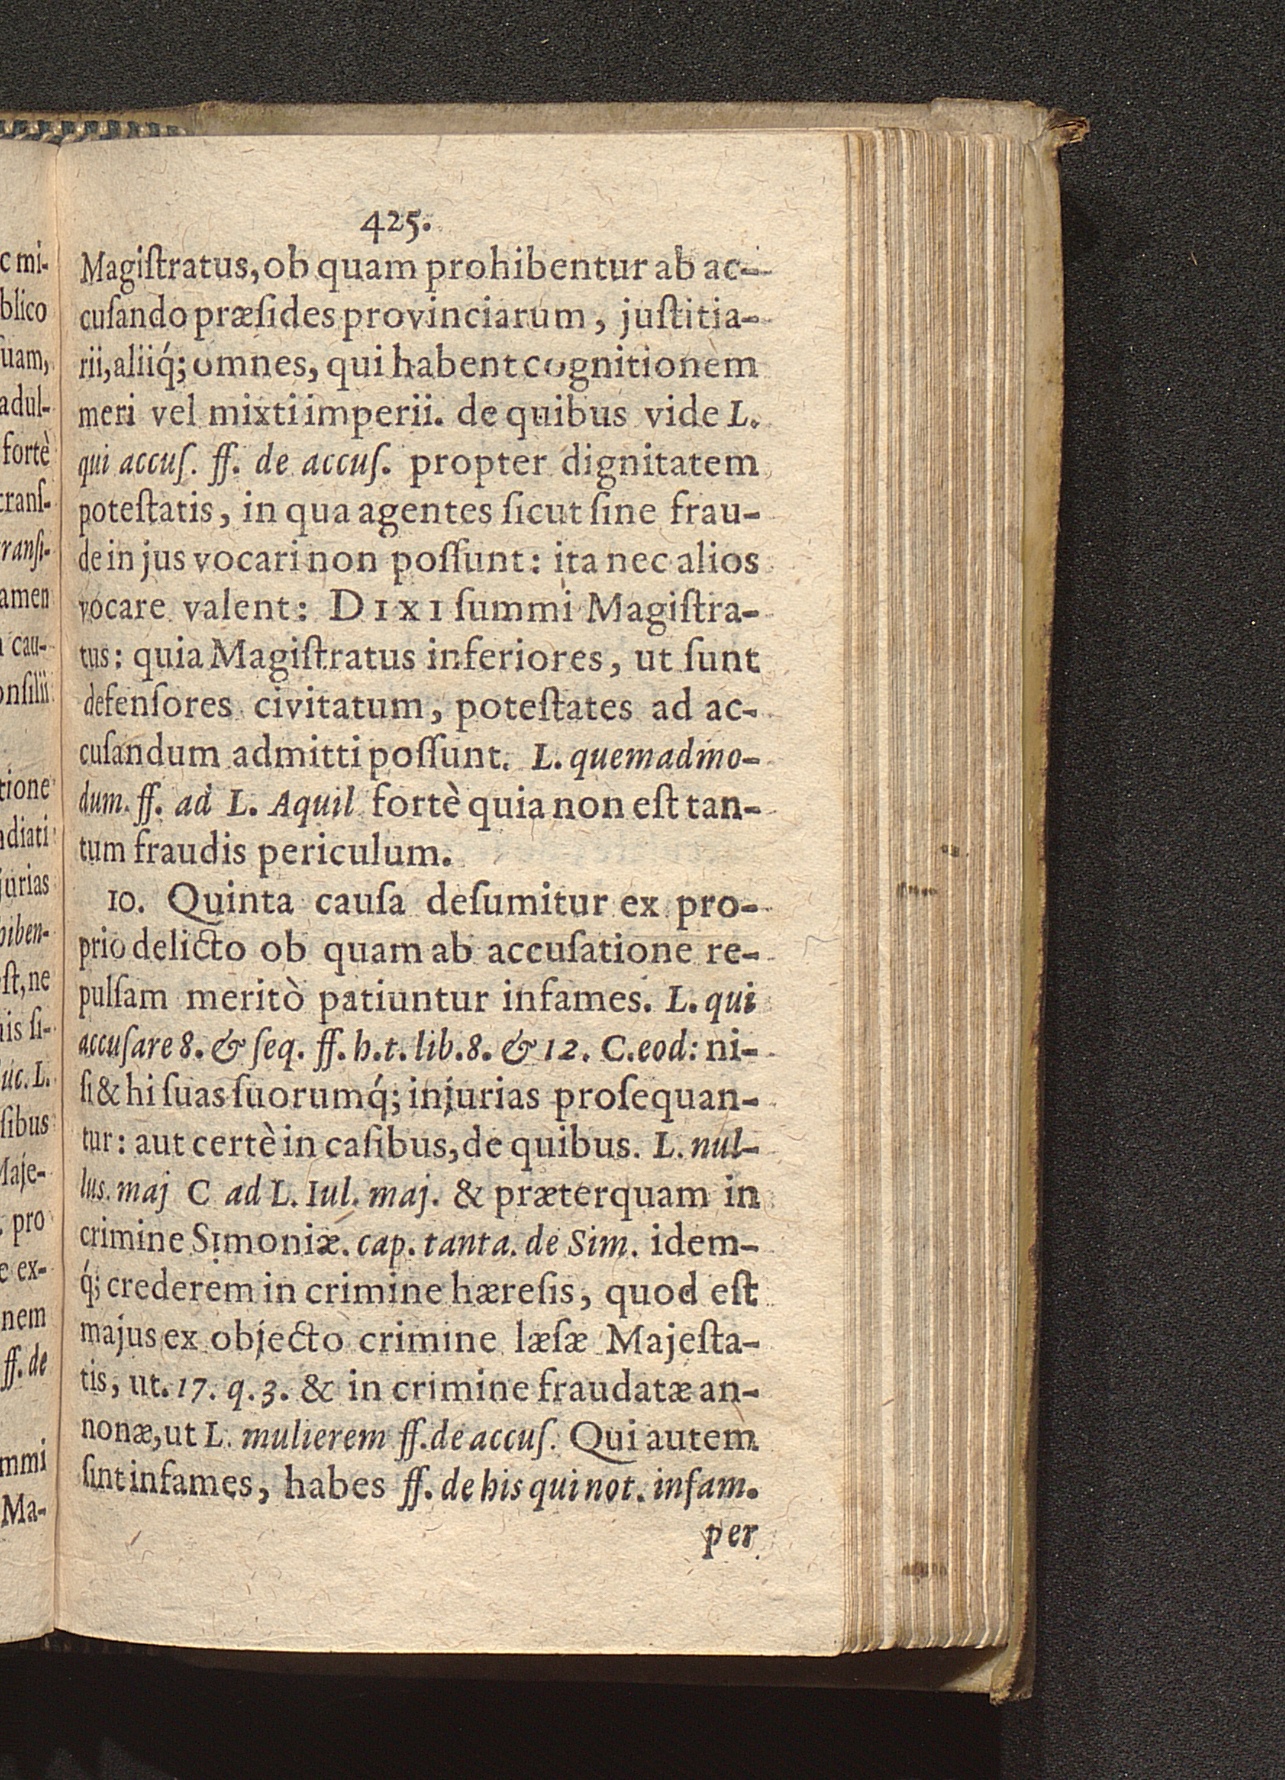 425.
Magiſtratus, ob quam prohibentur ab ac-
cuſando præſides provinciarum, juſtitia-
rii, aliiq́; omnes, qui habent cognitionem
meri vel mixti imperii. de quibus vide L.
qui accuſ. ff. de accuſ. propter dignitatem
poteſtatis, in qua agentes ſicut ſine frau-
de in jus vocari non poſſunt: ita nec alios
vocare valent: DIXI ſummi Magiſtra-
tus: quia Magiſtratus inferiores, ut ſunt
defenſores civitatum, poteſtates ad ac-
cuſandum admitti poſſunt. L. quemadmo-
dum. ff. ad L. Aquil fortè quia non eſt tan-
tum fraudis periculum.
10. Quinta cauſa deſumitur ex pro-
prio delicto ob quam ab accuſatione re-
pulſam meritò patiuntur infames. L. qui
accuſare 8. & ſeq. ff. h. t. lib. 8. & 12. C. eod: ni-
ſi & hi ſuas ſuorumq́; injurias proſequan-
tur: aut certè in caſibus, de quibus. L. nul-
lus. maj C ad L. Iul. maj. & præterquam in
crimine Simoniæ. cap. tanta. de Sim. idem-
q́; crederem in crimine hæreſis, quod eſt
majus ex objecto crimine læſæ Majeſta-
tis, ut. 17. q. 3. & in crimine fraudatæ an-
nonæ, ut L. mulierem ff. de accuſ. Qui autem
ſint infames, habes ff. de his qui not. infam.
per
c mi-
blico
ſuam,
adul-
fortè
tranſ-
ranſi-
amen
cau-
onſilii
tione
adiati
jurias
hiben-
eſt, ne
nis ſi-
L.
ſibus
Maje-
pro
ex-
nem
ff. de
mmi
Ma-